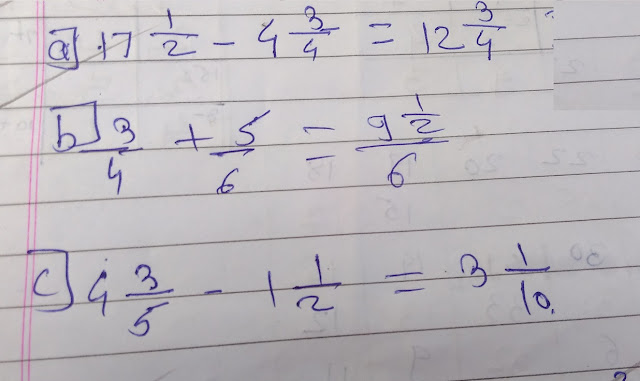 a] 17 1/2 - 4 3/4 = 12 3/4
b] 3/4 + 5/6 = 9 1/2 / 6
c] 4 3/5 - 1 1/2 = 3 1/10.